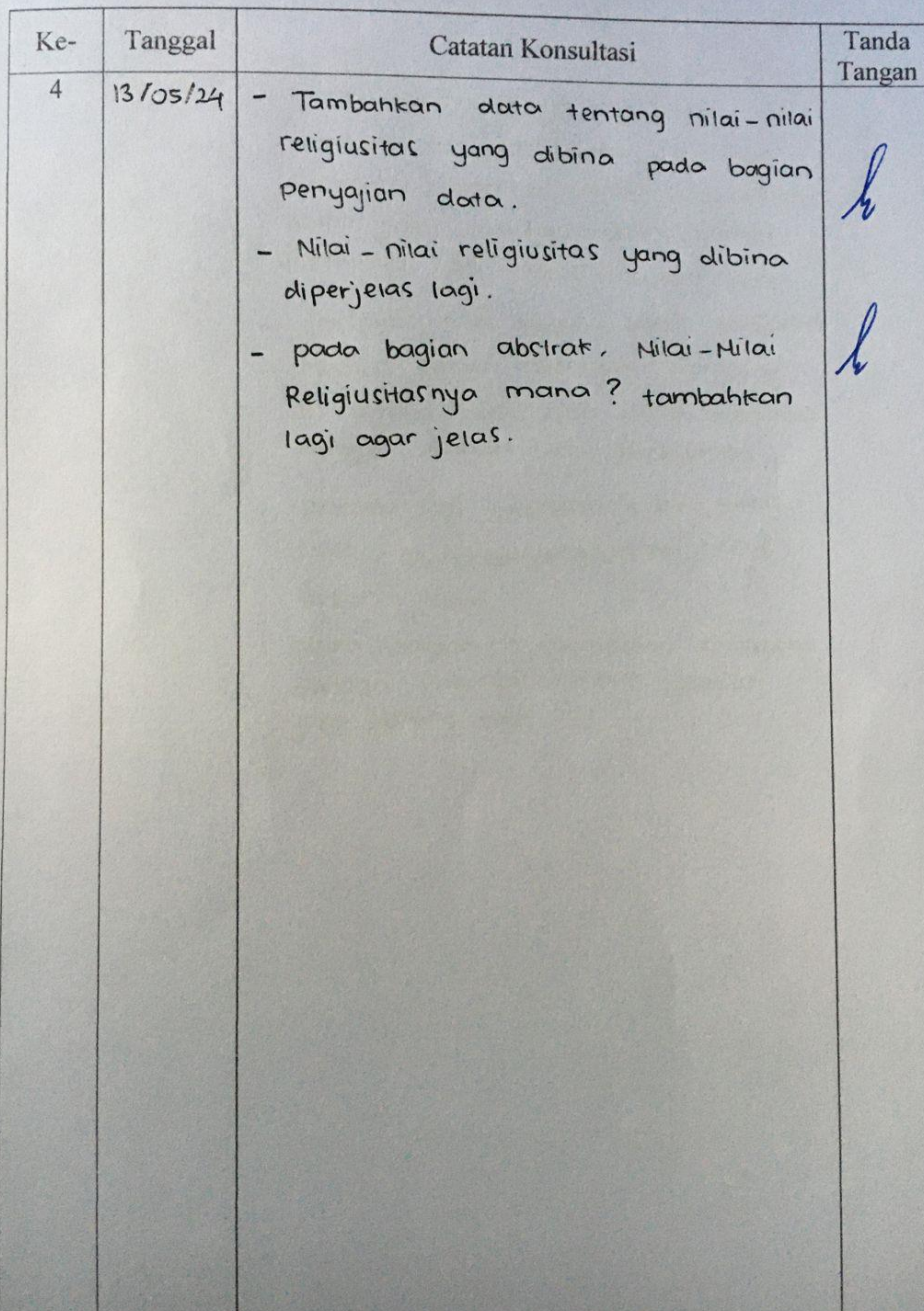 Ke- Tanggal Catatan Konsultasi Tanda Tangan
4 13/05/24 - Tambahkan data tentang nilai-nilai
religiusitas yang dibina pada bagian
penyajian data.
- Nilai-nilai religiusitas yang dibina
diperjelas lagi.
- pada bagian abstrak, Nilai-Nilai
Religiusitasnya mana? tambahkan
lagi agar jelas.